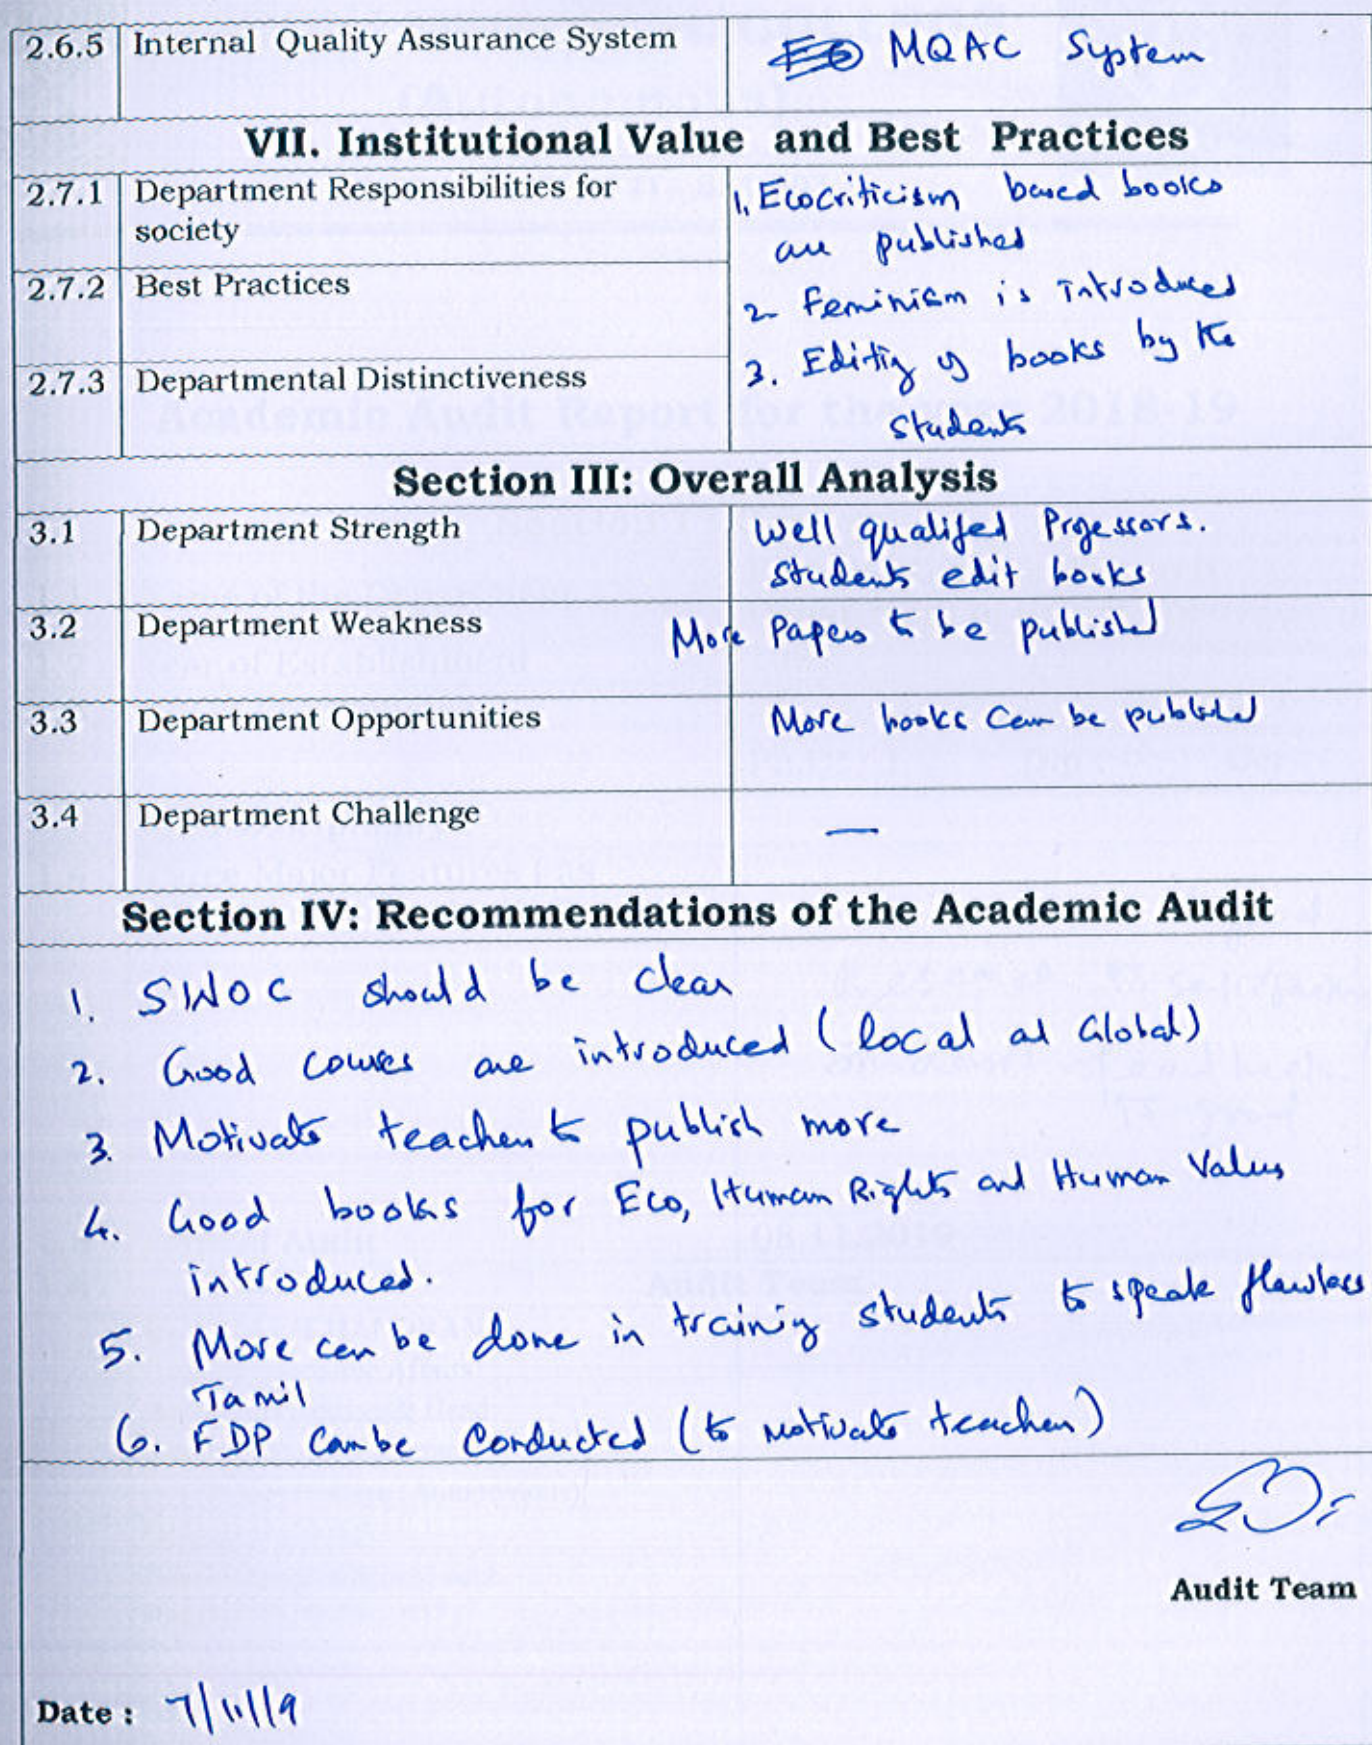 2.6.5 Internal Quality Assurance System MQAC System
VII. Institutional Value and Best Practices
2.7.1 Department Responsibilities for society
1. Ecocriticism based books
are published
2.7.2 Best Practices
2 Feminism is introduced
2.7.3 Departmental Distinctiveness
3. Editing of books by the
students
Section III: Overall Analysis
3.1 Department Strength
Well qualified Professors.
Students edit books
3.2 Department Weakness More Papers to be published
3.3 Department Opportunities More books can be published
3.4 Department Challenge —
Section IV: Recommendations of the Academic Audit
1. SWOC should be clear
2. Good courses are introduced (local and Global)
3. Motivate teachers to publish more
4. Good books for Eco, Human Rights and Human Values
introduced.
5. More can be done in training students to speak flawless
Tamil
6. FDP can be conducted (to motivate teachers)
Audit Team
Date : 7/11/19
Academic Audit Report for the year 2018-19